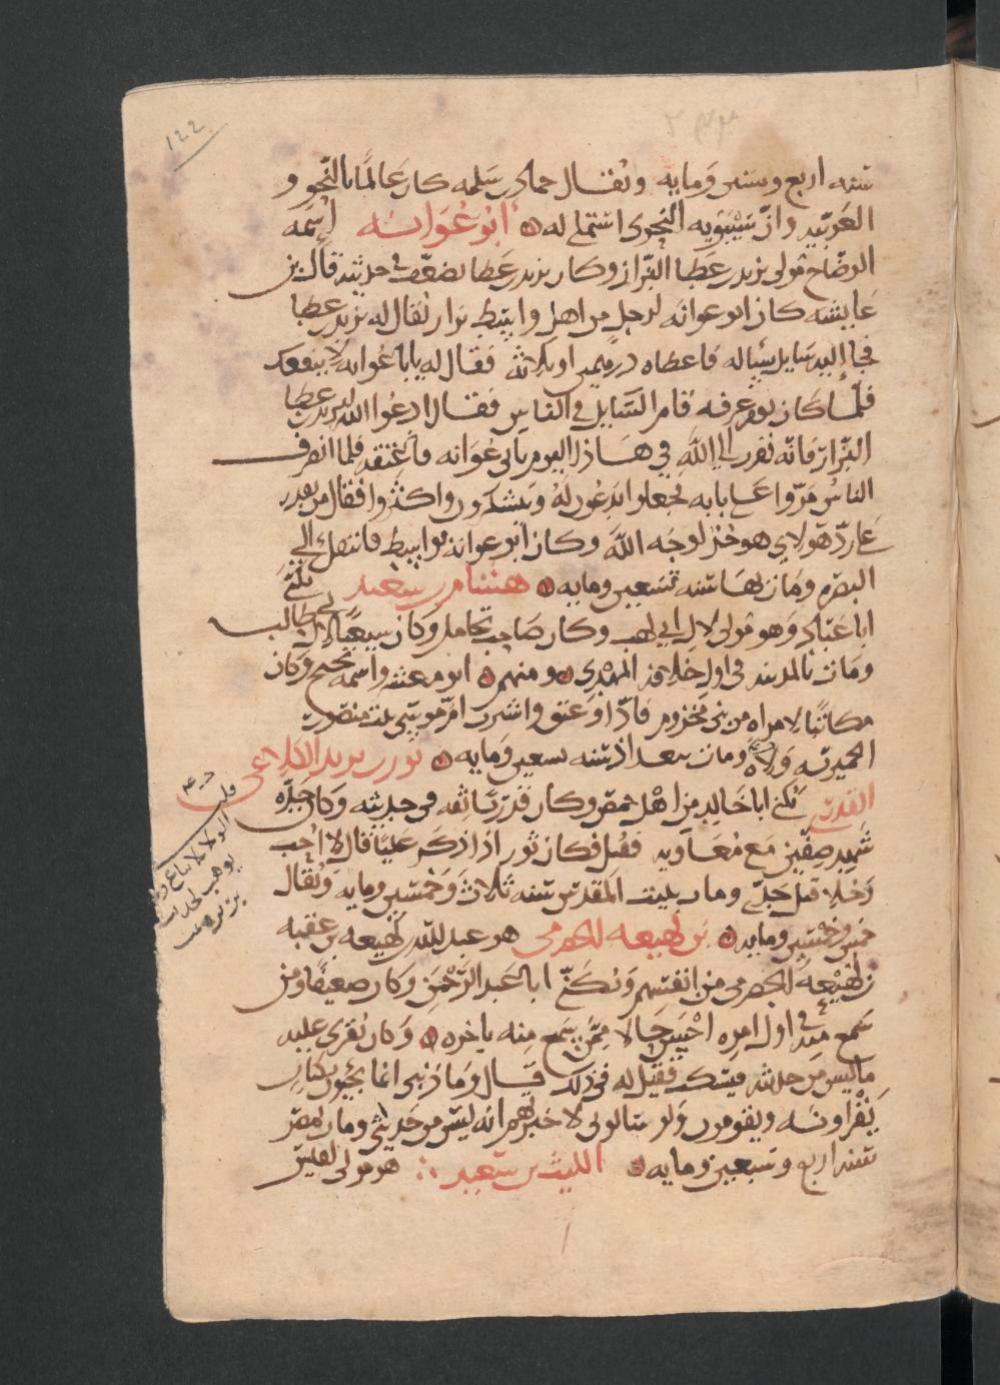 ١٤٤
سنه اربع وستين ومايه ويقال حماد بن سلمه كان عالما بالنحو و
العربيه وان سيبويه النحوي استملى له ابو عوانه اسمه
الوضاح مولى يزيد بن عطا البزاز وكان يزيد بن عطا يضعف في حديثه قال بن
عايشه كان ابو عوانه لرجل من اهل واسط بزاز يقال له يزيد بن عطا
فجا اليه سايل يساله فاعطاه درهمين او ثلاثه فقال له يابا عوانه لانفعنك
فلما كان يوم عرفه قام السايل في الناس فقال ادعوا الله ليزيد بن عطا
البزاز فانه تقرب الى الله في هذا اليوم بابي عوانه فاعتقه فلما انصرف
الناس مروا على بابه فجعلوا يدعون له ويشكرون واكثروا فقال من يقدر
على رد هولاي هو حر لوجه الله وكان ابو عوانه بواسط فانتقل الى
البصره ومات بها سنه سبعين ومايه هشام بن سعد يكنى
ابا عباد وهو مولى لال ابي لهب وكان صاحب محامل وكان شيعيا لال ابي طالب
ومات بالمدينه في اول خلافه المهدي ومنهم ابو معشر واسمه نجيح وكان
مكاتبا لامراه من بني مخزوم فادا وعتق واشترت ام موسى بنت منصور
الحميريه ولاه ومات ببغداد سنه سبعين ومايه ثور بن يزيد الكلاعي
القدري يكنى ابا خالد من اهل حمص وكان قدريا ثقه في حديثه وكان جده
شهد صفين مع معاويه فقتل فكان ثور اذا ذكر عليا قال لا احب
رجلا قتل جدي ومات ببيت المقدس سنه ثلاث وخمسين ومايه ويقال
خمس وخمسين ومايه بن لهيعه الحضرمي هو عبد الله بن لهيعه بن عقبه
بن لهيعه الحضرمي من انفسهم ويكنى ابا عبد الرحمن وكان ضعيفا ومن
سمع منه في اول امره احسن حالا ممن سمع منه باخره وكان يقرى عليه
ما ليس من حديثه فيسكت فقيل له في ذلك قال وما ذنبي انما يجيون بكتاب
يقراونه ويقومون ولو سالوني لاخبرتهم انه ليس من حديثي ومات بمصر
سنه اربع وسبعين ومايه الليث بن سعد هو مولى لقيس
قلت
الولا لا يباع ولا
يوهب